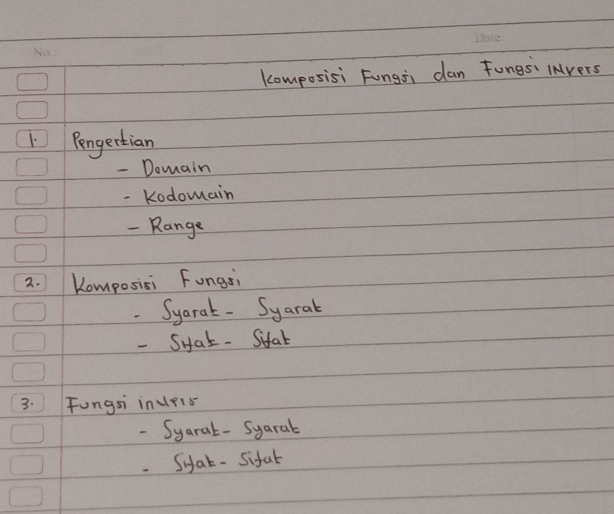 No.:
Date:
Komposisi Fungsi dan Fungsi Invers
1. Pengertian
- Domain
- Kodomain
- Range
2. Komposisi Fungsi
- Syarat - Syarat
- Sifat - Sifat
3. Fungsi invers
- Syarat - Syarat
- Sifat - Sifat